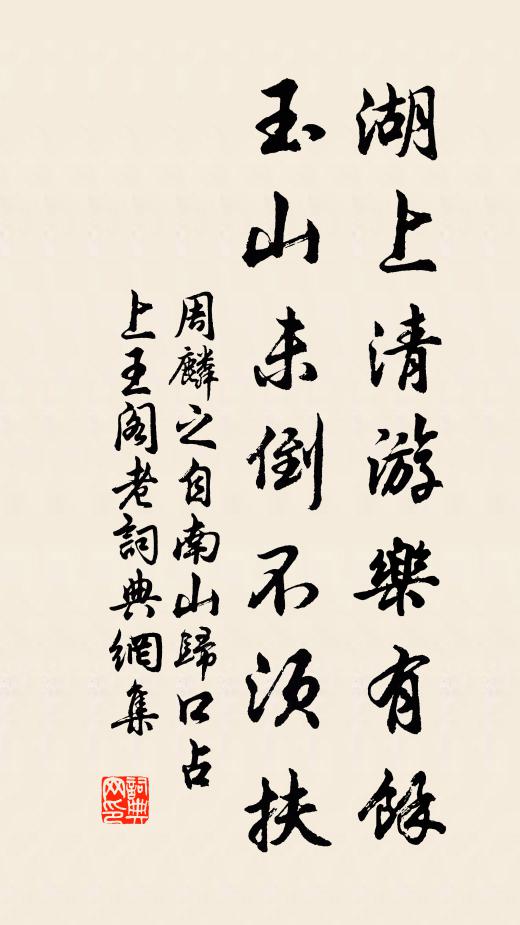 湖上清游樂有餘
玉山未倒不須扶
周麟之自南山歸口占
上王阁老詞典網集
詞典网印